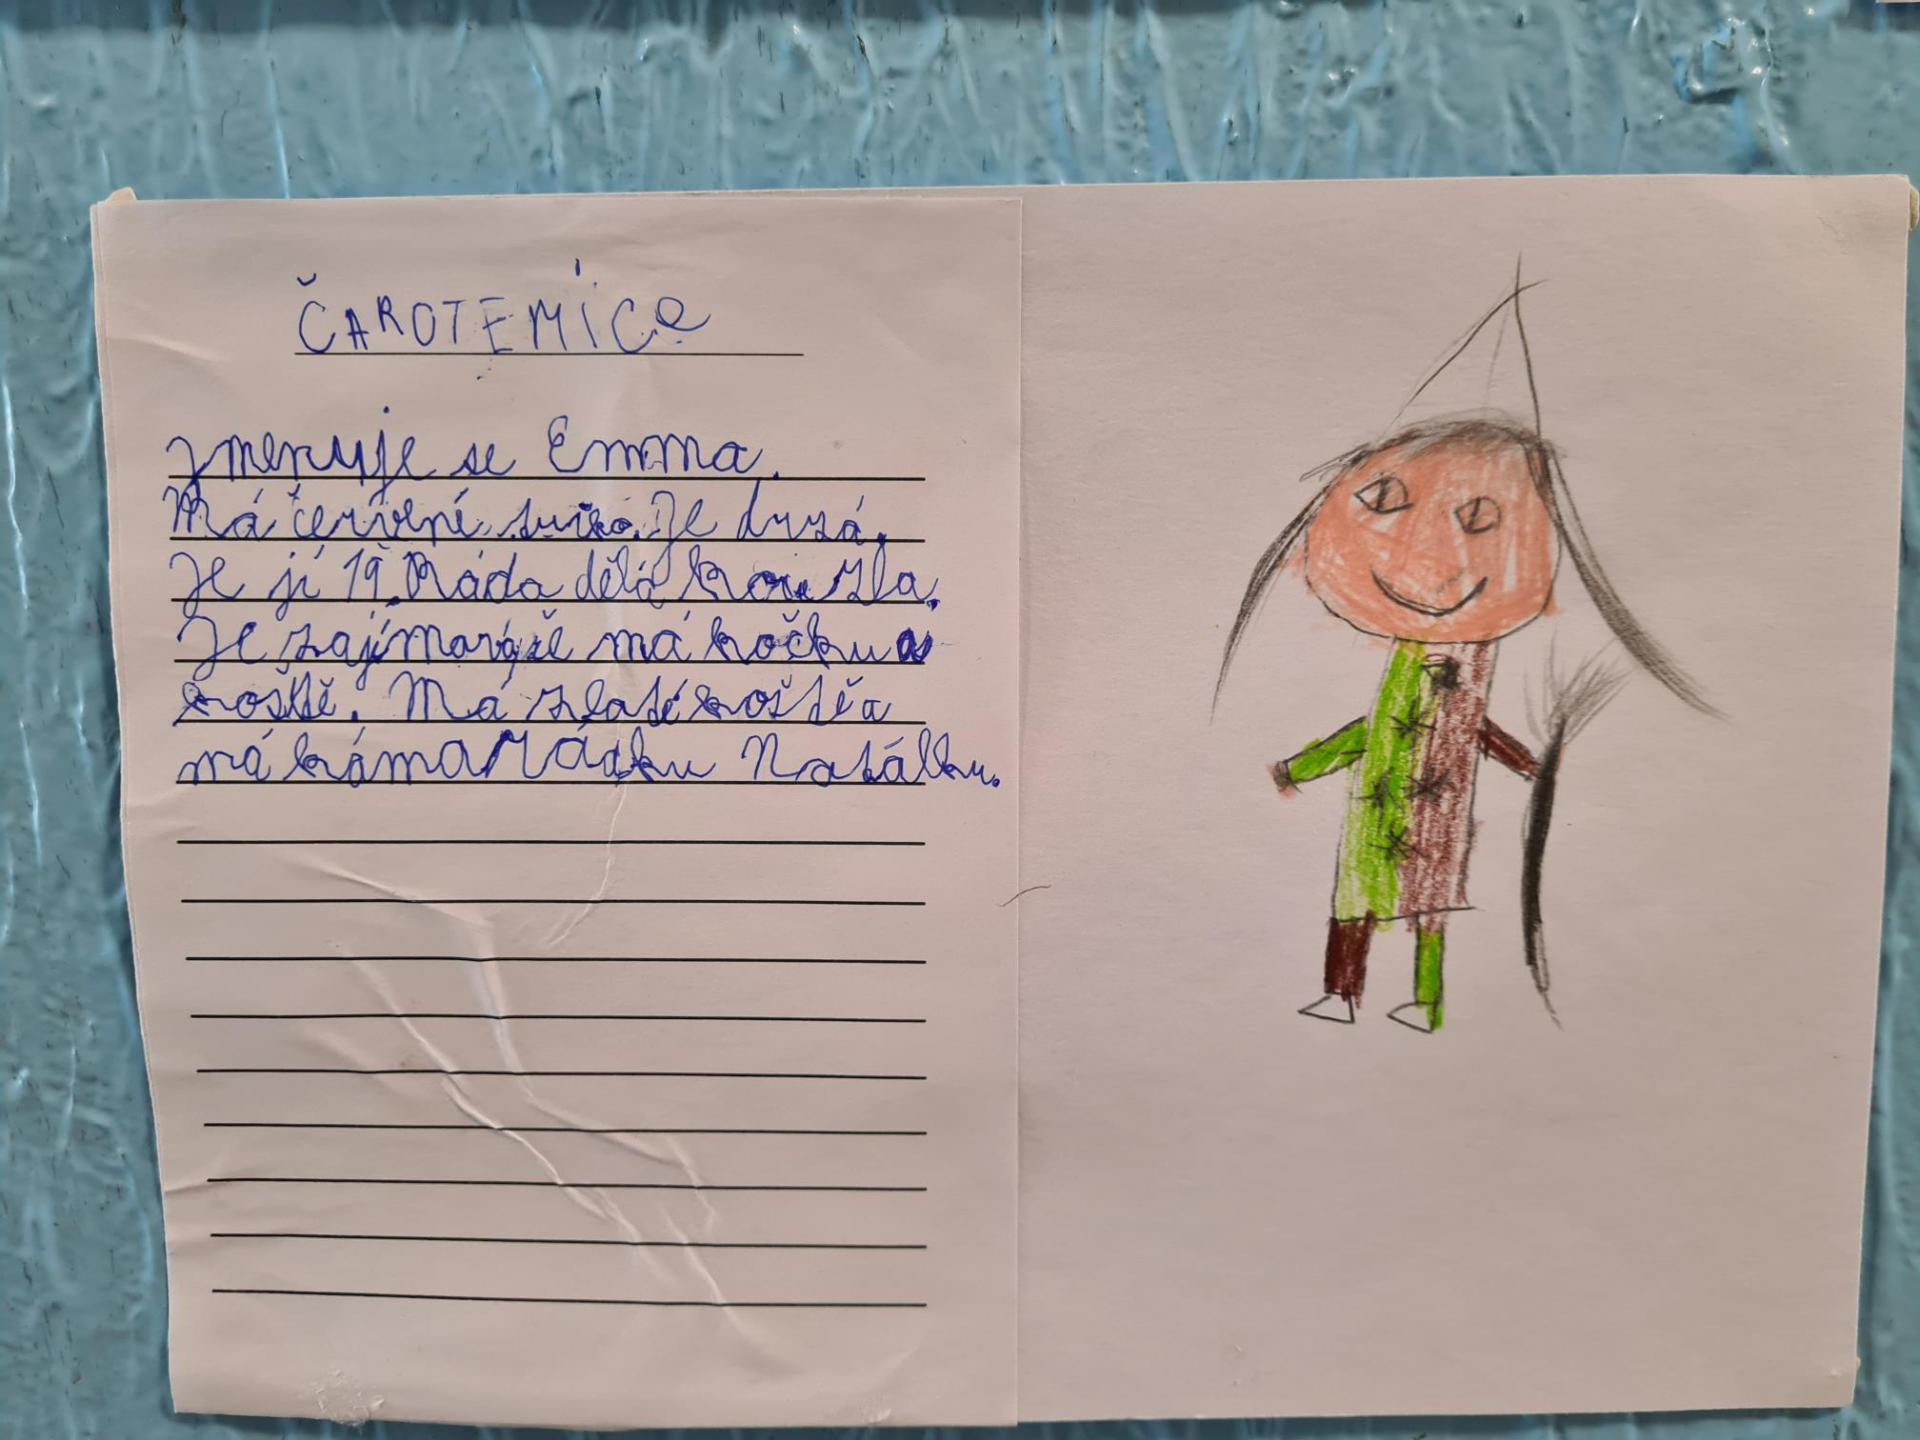 ČAROTEMICE
Jmenuje se Emma.
Má červené triko. Je drzá.
Je jí 19. Ráda dělá kouzla.
Je zajímavá že má kočku a
koště. Má zlaté koště a
má kámarádku Natálku.